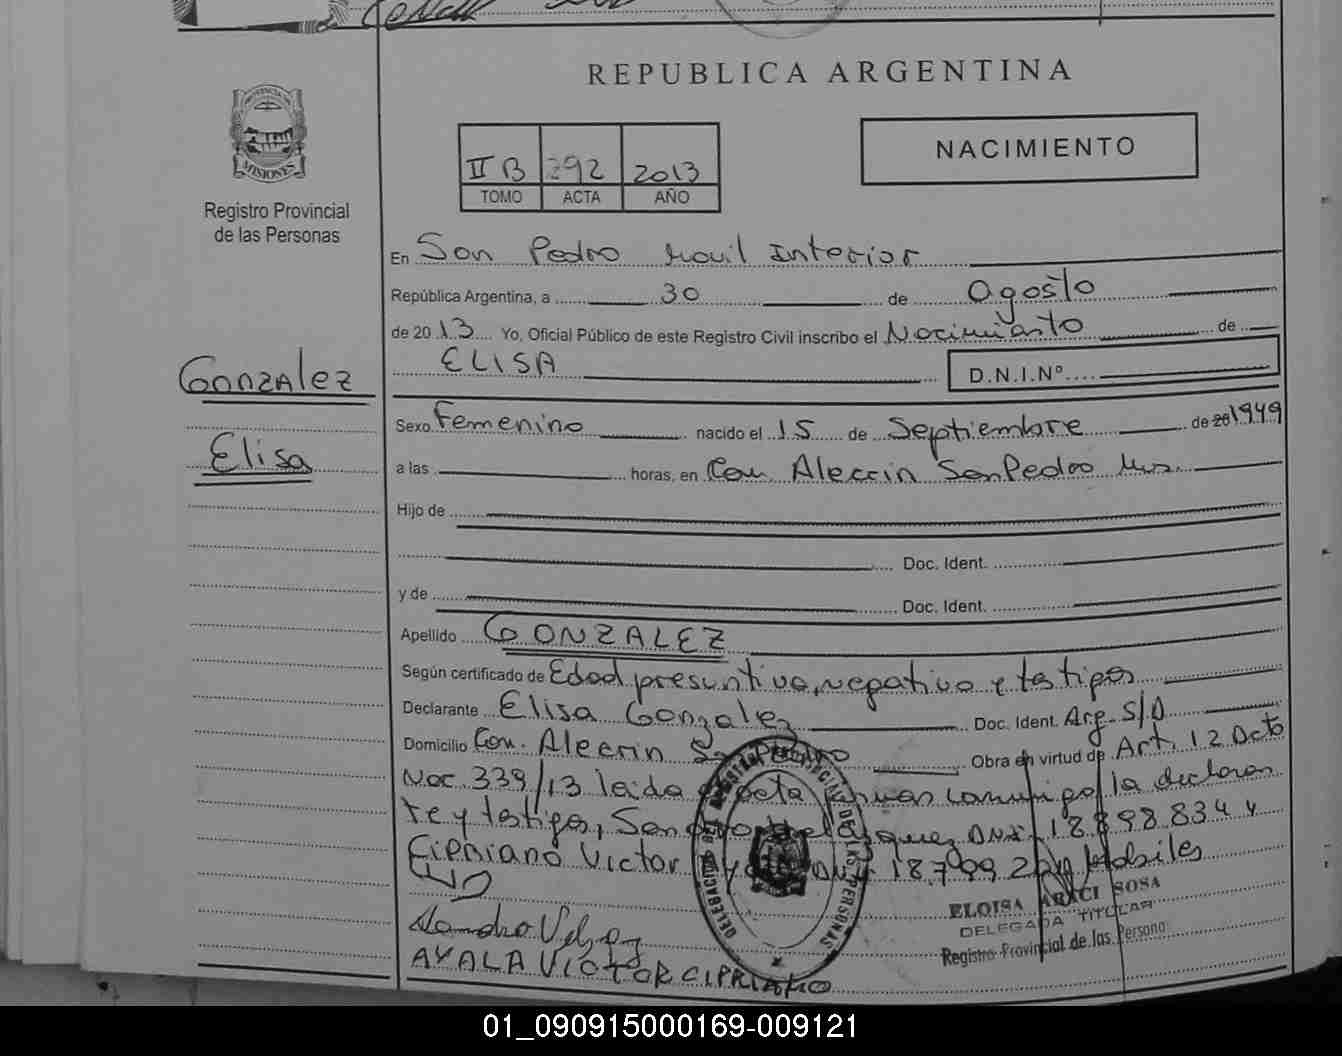 REPUBLICA ARGENTINA
PROVINCIA DE
MISIONES
Registro Provincial
de las Personas
II B 292 2013
TOMO ACTA AÑO
NACIMIENTO
En San Pedro Movil Interior
República Argentina, a 30 de Agosto
de 2013 Yo, Oficial Público de este Registro Civil inscribo el Nacimiento de
ELISA D.N.I.Nº
Gonzalez
Elisa
Sexo Femenino nacido el 15 de Septiembre de 20 1949
a las horas, en Com. Alecrin San Pedro Mns.
Hijo de
Doc. Ident.
y de Doc. Ident.
Apellido GONZALEZ
Según certificado de Edad presuntiva, negativa y testigos
Declarante Elisa Gonzalez Doc. Ident. Arg. S/D
Domicilio Com. Alecrin San Pedro Obra en virtud de Art. 12 Dcto
Nac. 339/13 leida el acta firman conmigo la declaran
te y testigos, Sandro Velasquez DNI. 18898834 y
Cipriano Victor Ayala DNI. 18.799 Habiles
Sandro
AYALA VICTOR CIPRIANO
DELEGACION DEL REGISTRO PROVINCIAL DE LAS PERSONAS
ELOISA ARACI SOSA
DELEGADA TITULAR
Registro Provincial de las Personas
01_090915000169-009121